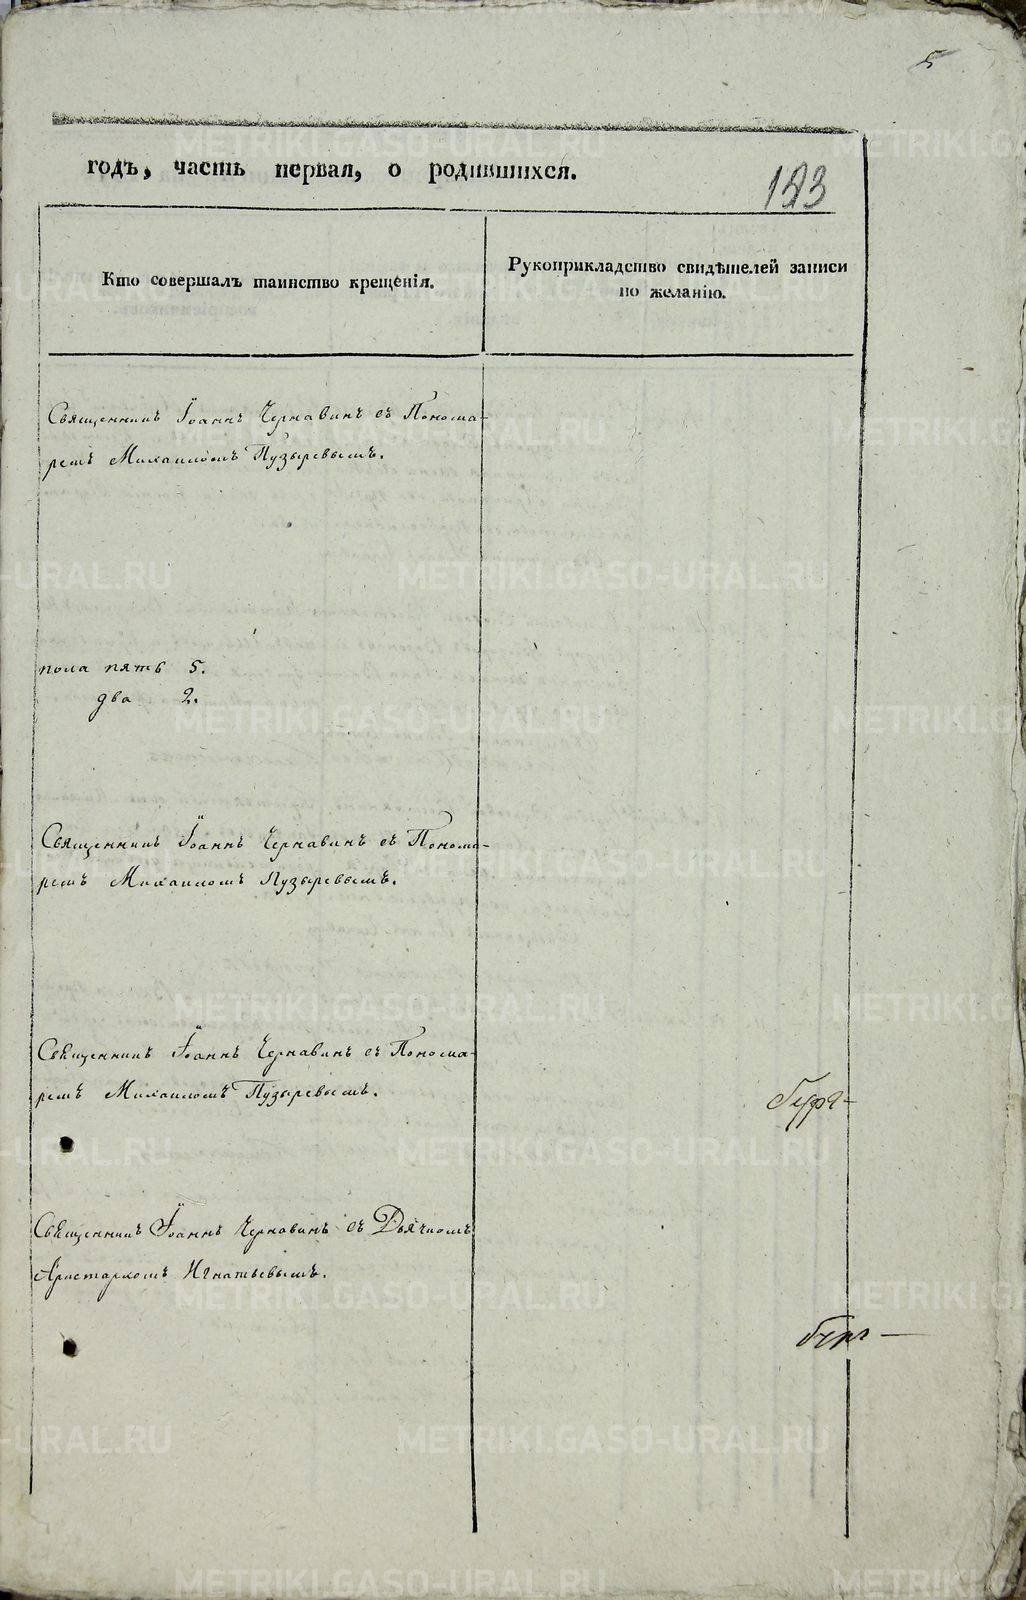 5
годъ, часть первая, о родившихся.
Кто совершалъ таинство крещенія.
Рукоприкладство свидѣтелей записи
по желанію.
Священникъ Іоаннъ Чернавинъ съ Понома-
ремъ Михаиломъ Пузыревымъ.
пола пять 5.
два 2.
Священникъ Іоаннъ Чернавинъ съ Понома-
ремъ Михаиломъ Пузыревымъ.
Священникъ Іоаннъ Чернавинъ съ Понома-
ремъ Михаиломъ Пузыревымъ.
Священникъ Іоаннъ Чернавинъ съ Дьячкомъ
Аристархомъ Игнатьевымъ.
METRIKI.GASO-URAL.RU